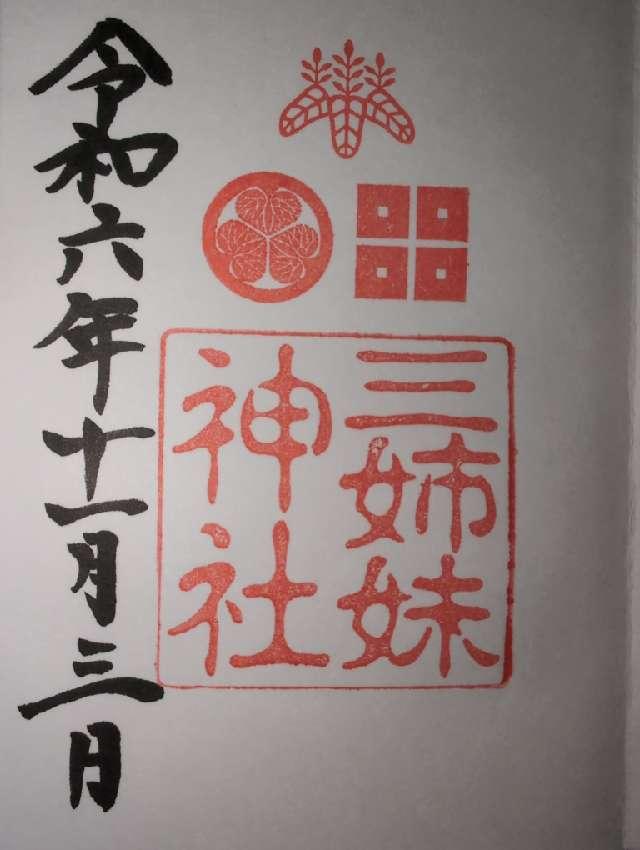 三姉妹
神社
令和六年十一月三日